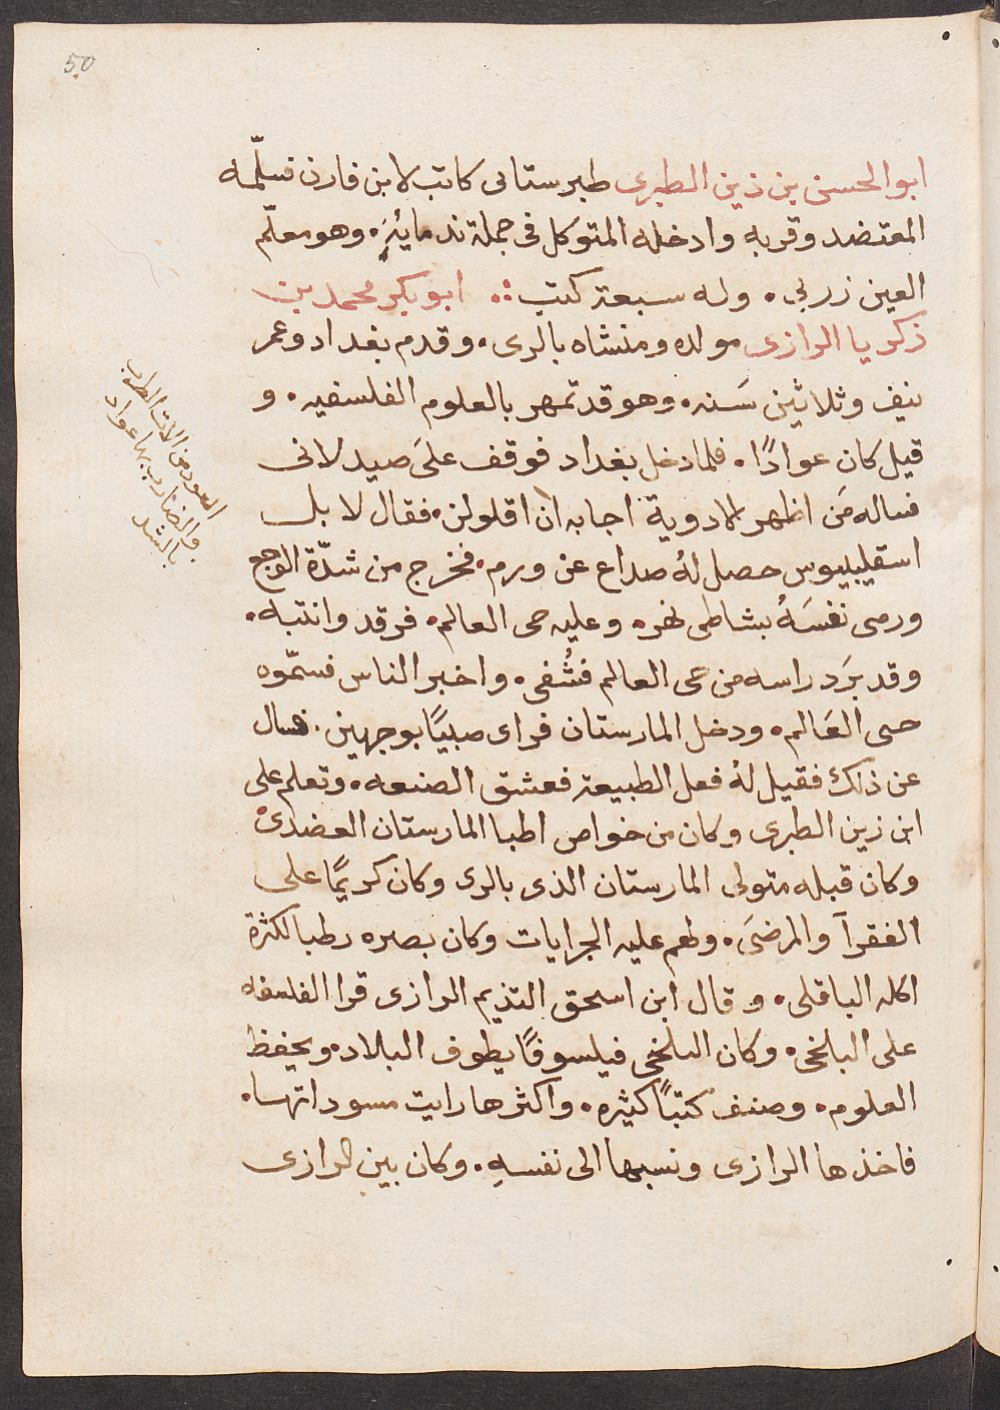 50
ابو الحسن بن زين الطبرى طبرستانى كاتب لابن قارن فسلّمه
المعتضد وقربه وادخله المتوكل فى جملة ندمائِهِ. وهو معلّم
العين زربى. وله سبعة كتب ⁘ ابو بكر محمد بن
زكريا الرازى مولده ومنشاه بالرى. وقدم بغداد وعمر
نيف وثلاثين سَنه. وهو قد تمهر بالعلوم الفلسفيه. و
قيل كان عوادًا. فلما دخل بغداد فوقف علَى صيدلانى
فساله مَن اظهر الادوية اجابه ان اقلولن. فقال لا بل
اسقليبيوس حصل لهُ صداع عن ورم. فخرج من شدّة الوجع
ورمى نفسَهُ بشاطى نهر. وعليه حى العالم. فرقد وانتبه.
وقد برَد راسه من حى العالم فشُفى. واخبر الناس فسمّوه
حى العَالم. ودخل المارستان فراى صبيًا بوجهين. فسال
عن ذلك فقيل لهُ فعل الطبيعة فعشق الصنعه. وتعلم على
ابن زين الطبرى وكان من خواص اطبا المارستان العضدى.
وكان قبله متولى المارستان الذى بالرى وكان كريمًا على
الفقرآ والمرضَى. ولهم عليه الجرايات وكان بصره رطبا لكثرة
اكله الباقلى. وقال ابن اسحق النديم الرازى قرا الفلسفه
على البلخى. وكان البلخى فيلسوفًا يطوف البلاد. ويحفظ
العلوم. وصنف كتبًا كثيره. واكثرها رايت مسوداتها.
فاخذها الرازى ونسبها الى نفسهِ. وكان بين الرازى
العود من الات الطرب
والضارب بها عواد
بالشد